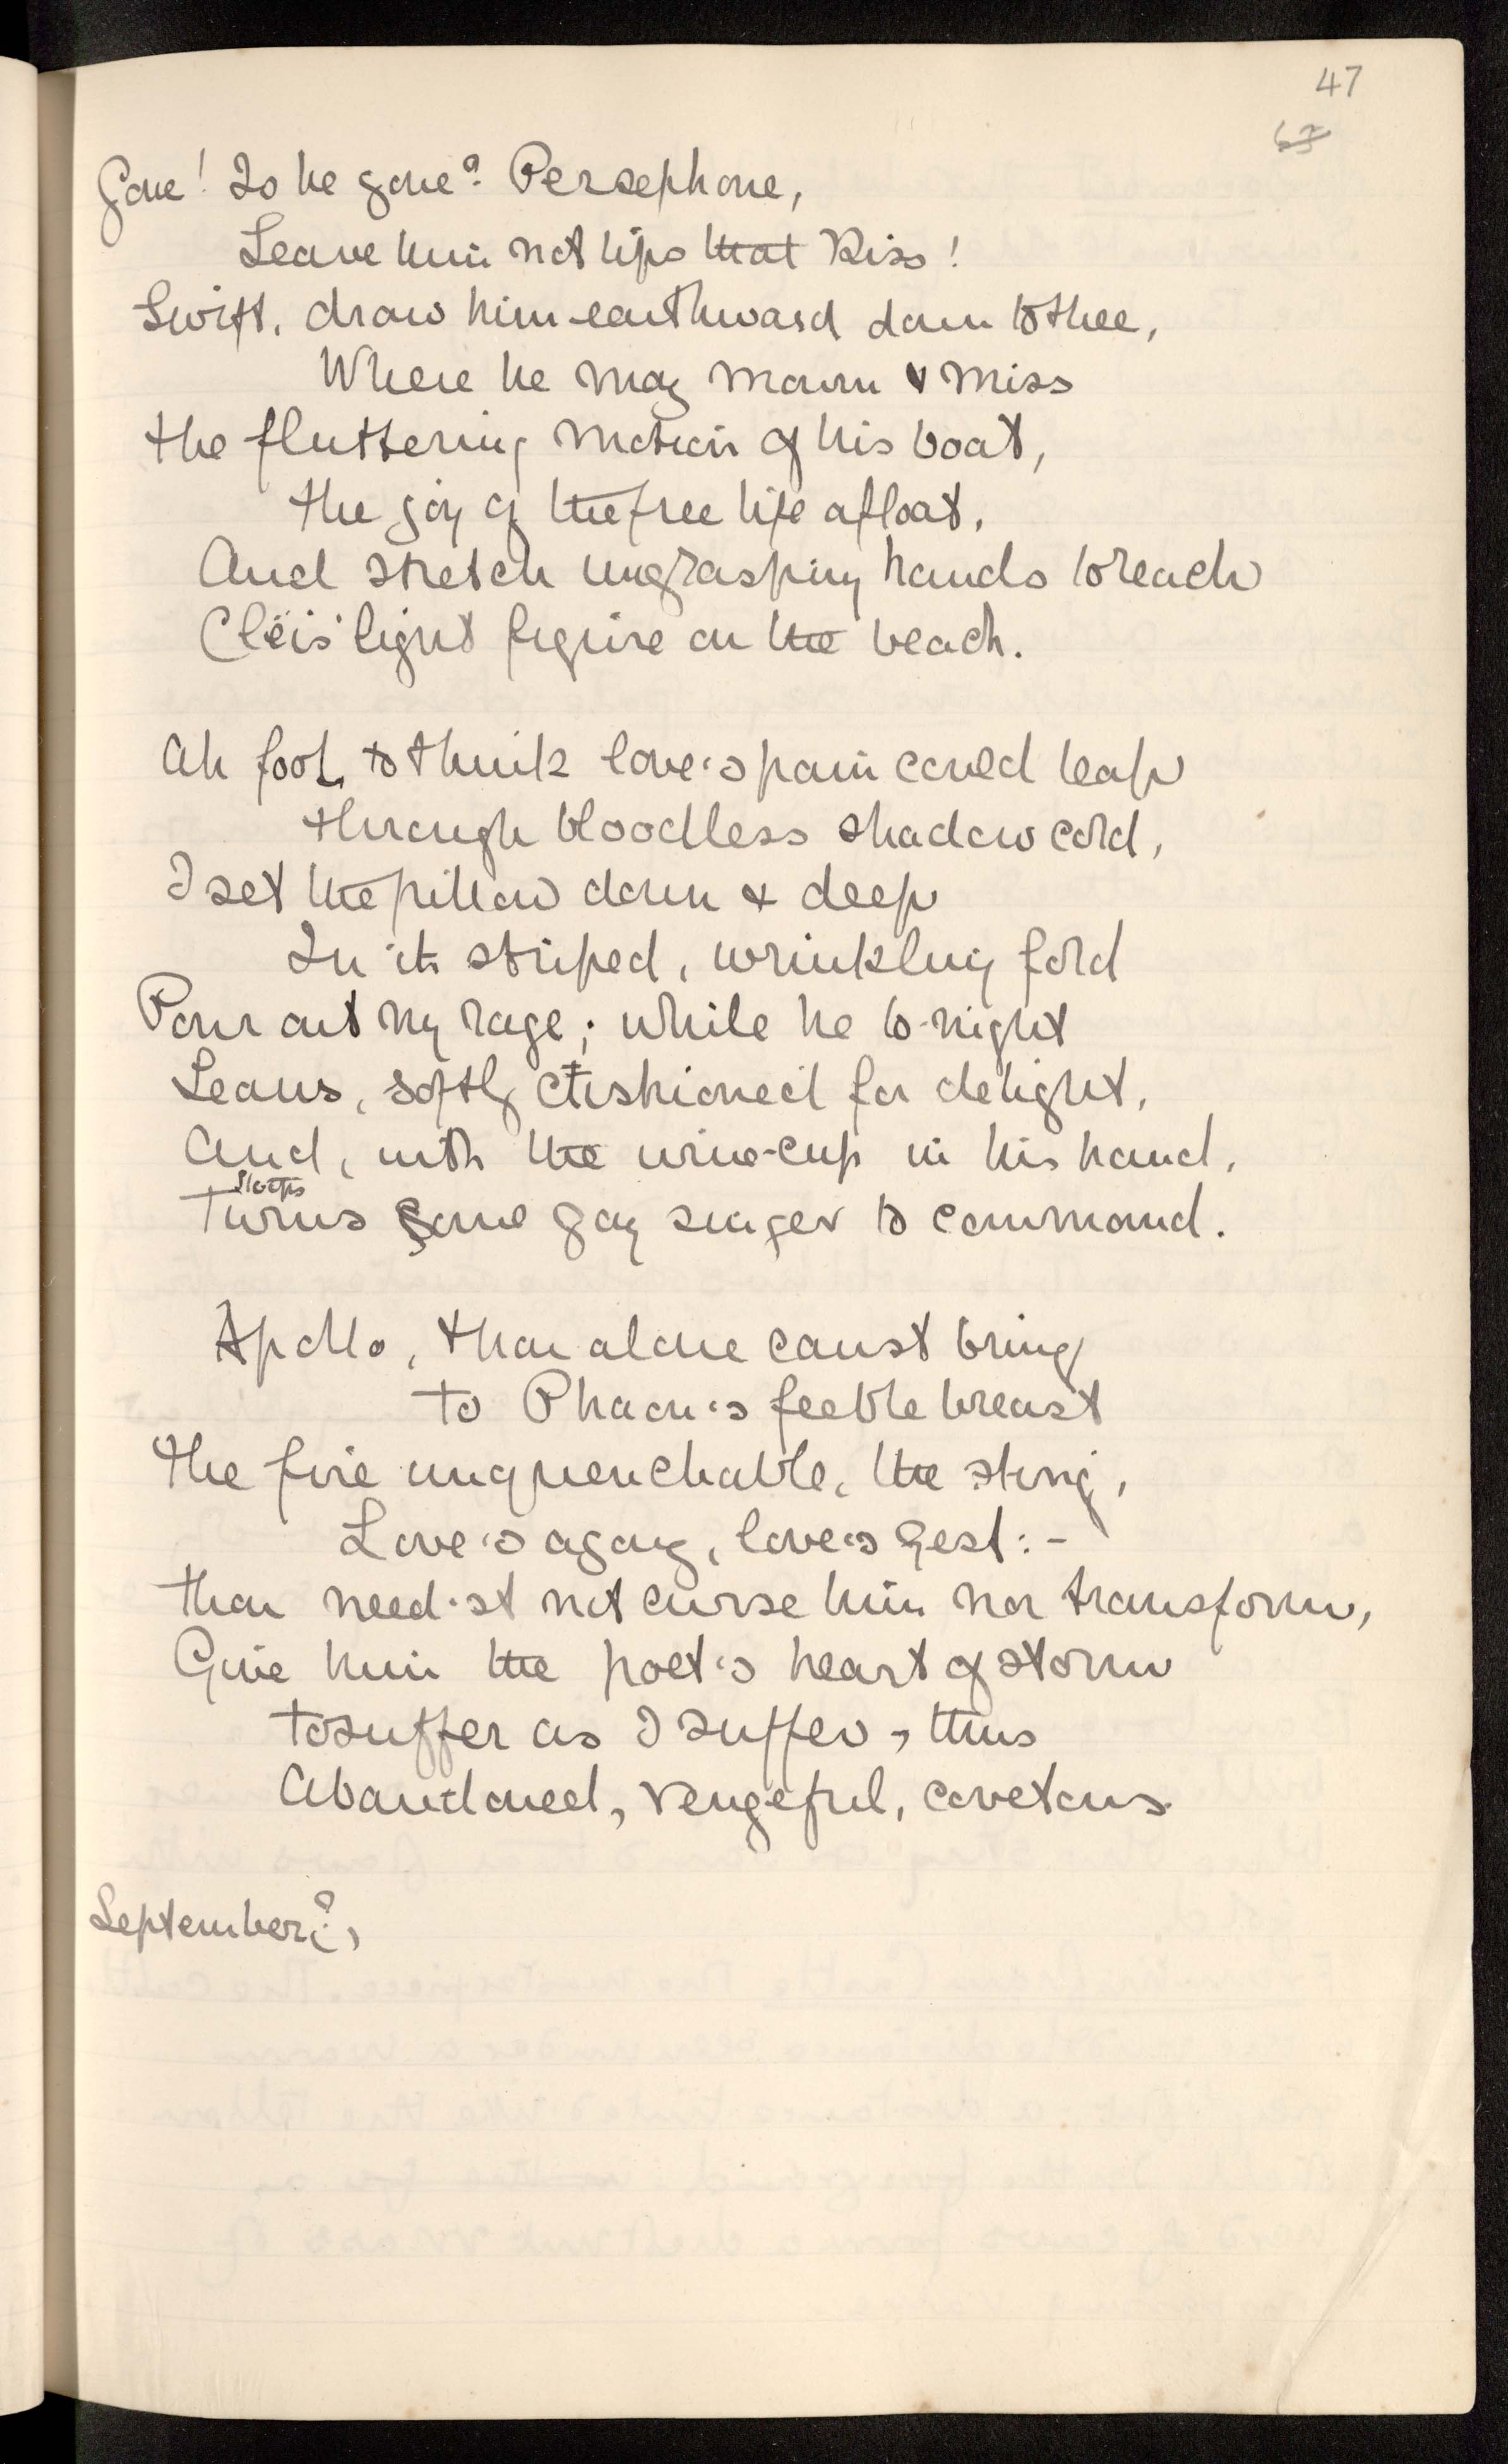 47
67
Gone! Is he gone? Persephone,
Leave him not lips that kiss!
Swift, draw him earthward down to thee,
Where he may mourn & miss
the fluttering motion of his boat,
the joy of the free life afloat,
And stretch ungrasping hands to reach
Clëis' light figure on the beach.
Ah fool, to think love's pain could leap
through bloodless shadow cold,
I set the pillow down & deep
In its striped, wrinkling fold
Pour out my rage; while he to-night
Leans, softly cushioned for delight,
And, with the wine-cup in his hand,
Stoops
Turns some gay singer to command.
Apollo, thou alone canst bring
to Phaon's feeble breast
the fire unquenchable, the sting,
Love's agony, love's zest:-
thou need'st not curse him nor transform,
Give him the poet's heart of storm
to suffer as I suffer, thus
Abandoned, vengeful, covetous.
September?,